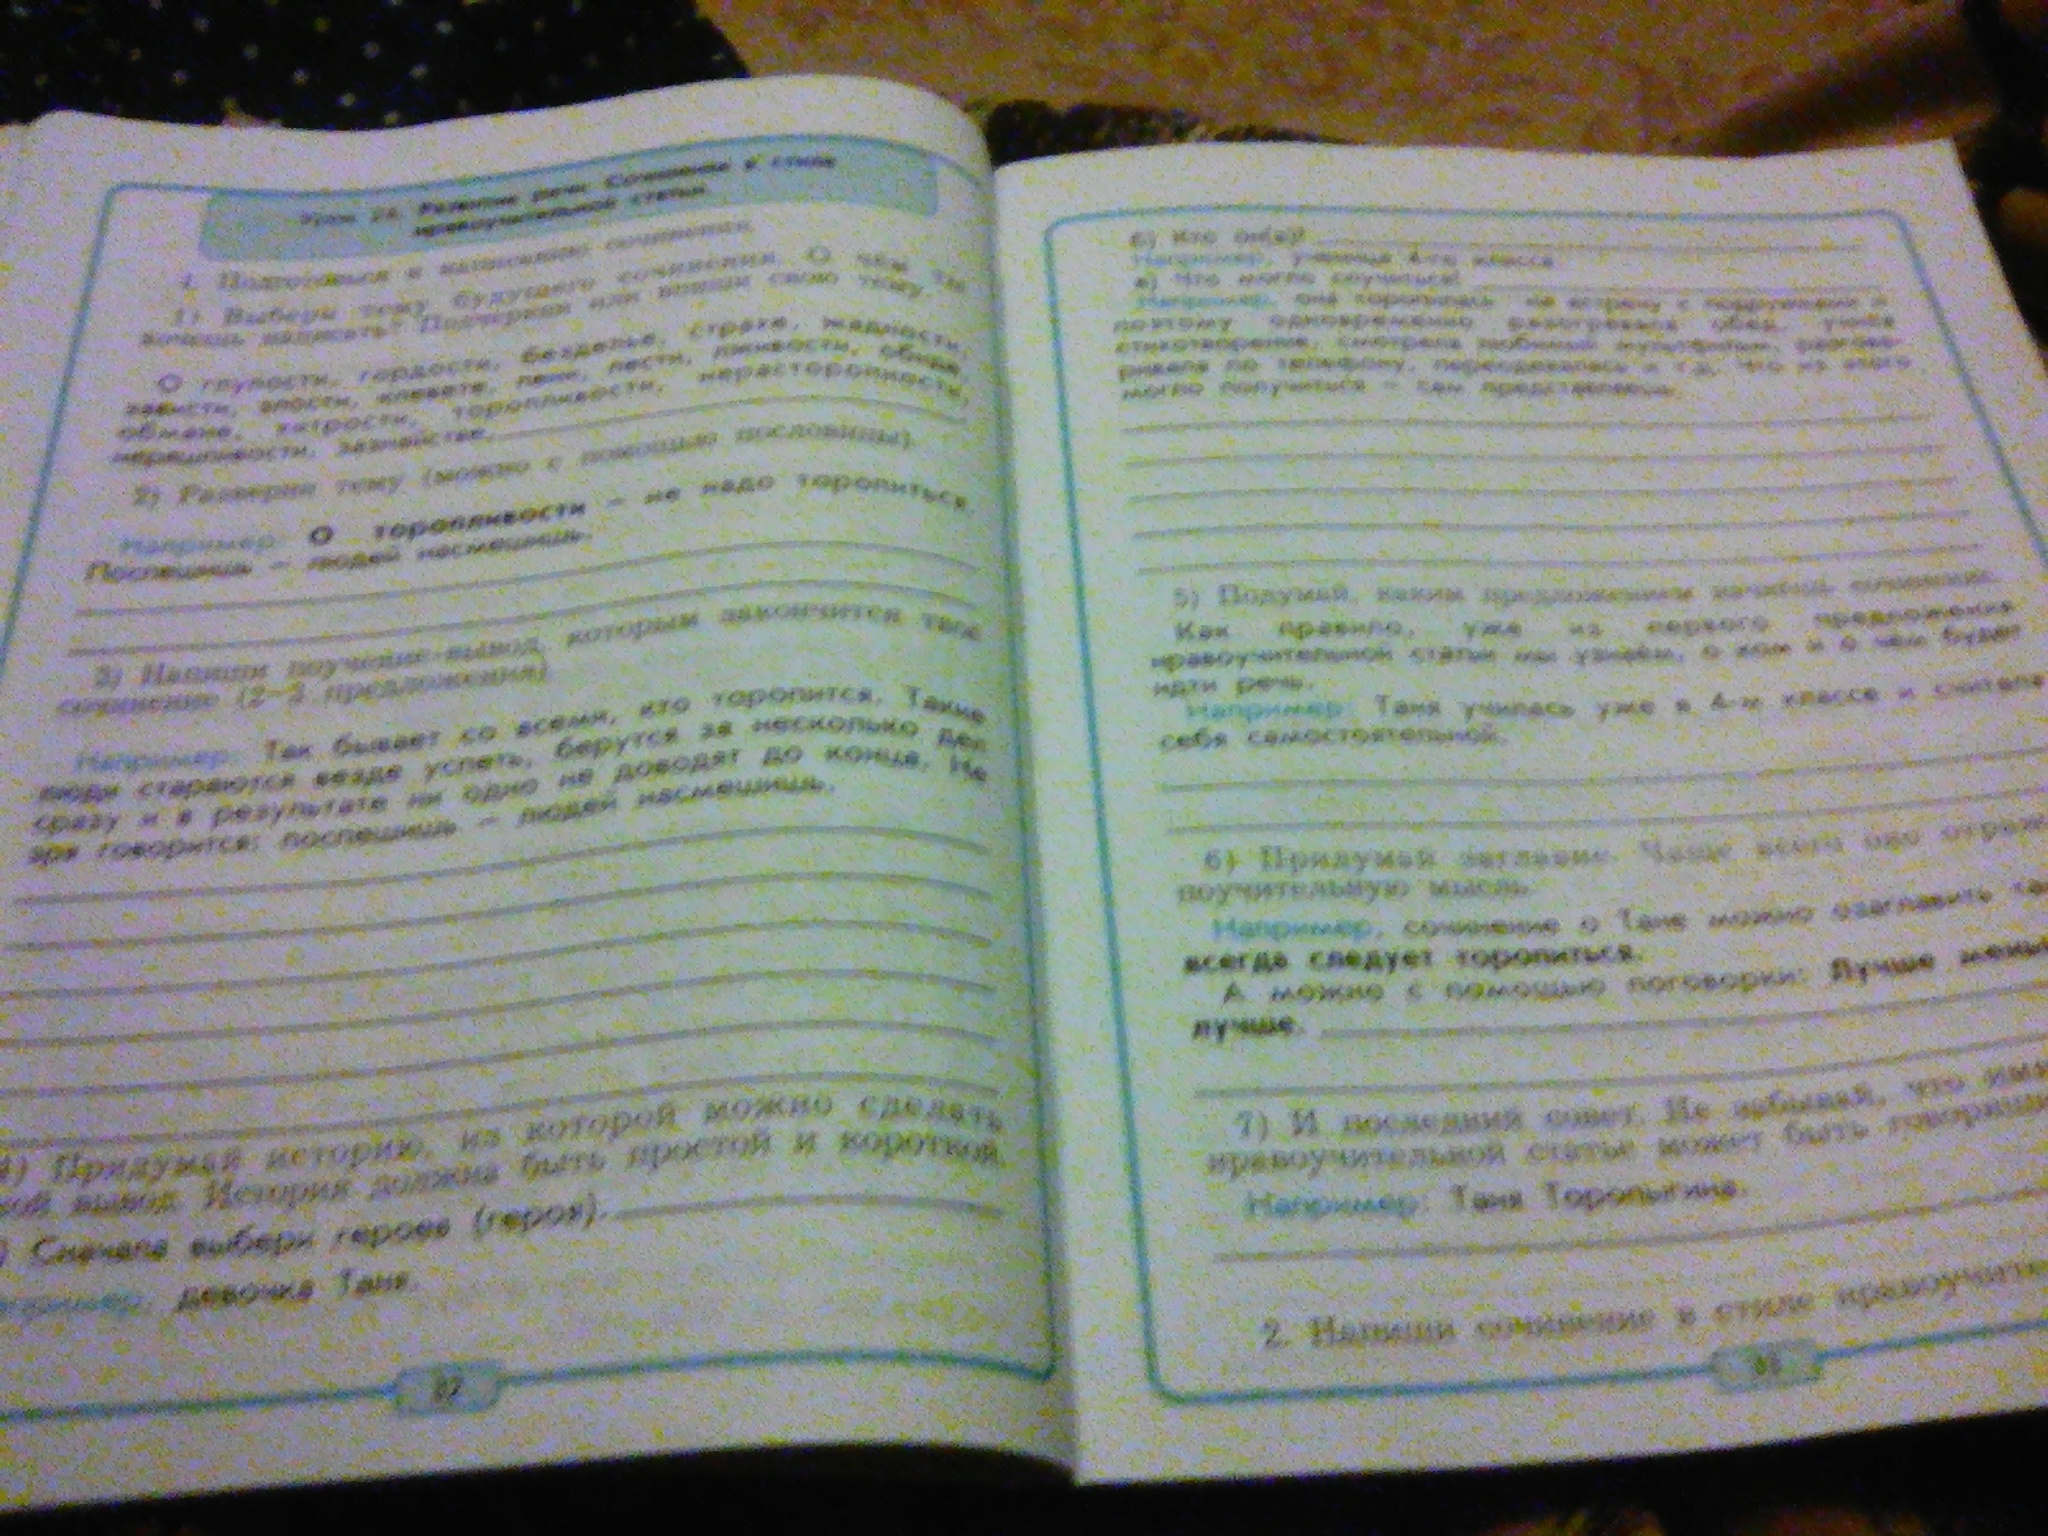 Развитие речи. Сочинение в стиле
нравоучительной статьи
1. Подготовься к написанию сочинения.
1) Выбери тему будущего сочинения. О чём ты
хочешь написать? Подчеркни или впиши свою тему.
О глупости, гордости, безделье, страхе, жадности,
зависти, злости, клевете, лени, лести, лживости, обиде,
обмане, хитрости, торопливости, нерасторопности,
неряшливости, зазнайстве.
2) Разверни тему (можно с помощью пословицы).
Например: О торопливости – не надо торопиться.
Поспешишь – людей насмешишь.
3) Напиши поучение-вывод, которым закончится твоё
сочинение (2–3 предложения)
Например: Так бывает со всеми, кто торопится. Такие
люди стараются везде успеть, берутся за несколько дел
сразу и в результате ни одно не доводят до конца. Не
зря говорится: поспешишь – людей насмешишь.
4) Придумай историю, из которой можно сделать
вывод. История должна быть простой и короткой.
) Сначала выбери героев (героя).
Например, девочка Таня.
б) Кто он(а)?
Например, ученица 4-го класса
в) Что могло случиться?
Например, она торопилась на встречу с подружками и
поэтому одновременно разогревала обед, учила
стихотворение, смотрела любимый мультфильм, разгова-
ривала по телефону, переодевалась и т.д. Что из этого
могло получиться – сам представляешь.
5) Подумай, каким предложением начнёшь сочинение.
Как правило, уже из первого предложения
нравоучительной статьи мы узнаём, о ком и о чём будет
идти речь.
Например: Таня училась уже в 4-м классе и считала
себя самостоятельной.
6) Придумай заглавие. Чаще всего оно отраж
поучительную мысль.
Например, сочинение о Тане можно озаглавить так
всегда следует торопиться.
А можно с помощью поговорки: Лучше мень
лучше.
7) И последний совет. Не забывай, что имя
нравоучительной статье может быть говорящи
Например: Таня Торопыгина.
2. Напиши сочинение в стиле нравоучите